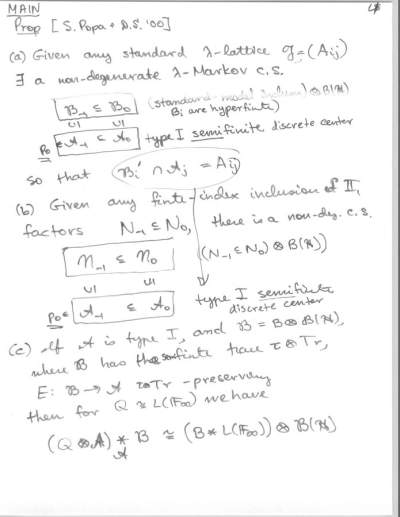 MAIN
Prop [S. Popa + D.S. '00]
(a) Given any standard λ-lattice G = (Aij)
∃ a non-degenerate λ-Markov c.s.
B₋₁ ⊆ B₀ (standard model ) ⊗ B(H)
Bi are hyperfinite
∪ı ∪ı
p₀ ∈ A₋₁ ⊆ A₀ type I semifinite discrete center
so that Bi' ∩ Aj = Aij
(b) Given any finite-index inclusion of II₁
factors N₋₁ ⊆ N₀, there is a non-deg. c.s.
N₋₁ ⊆ N₀ (N₋₁ ⊆ N₀) ⊗ B(H)
∪ı ∪ı
p₀ ∈ A₋₁ ⊆ A₀ type I semifinite
discrete center
(c) If A is type I, and B = B ⊗ B(H),
where B has finite trace τ ⊗ Tr,
E: B → A τ⊗Tr -preserving
then for Q ≅ L(F∞) we have
(Q ⊗ A) * B ≅ (B * L(F∞)) ⊗ B(H)
A